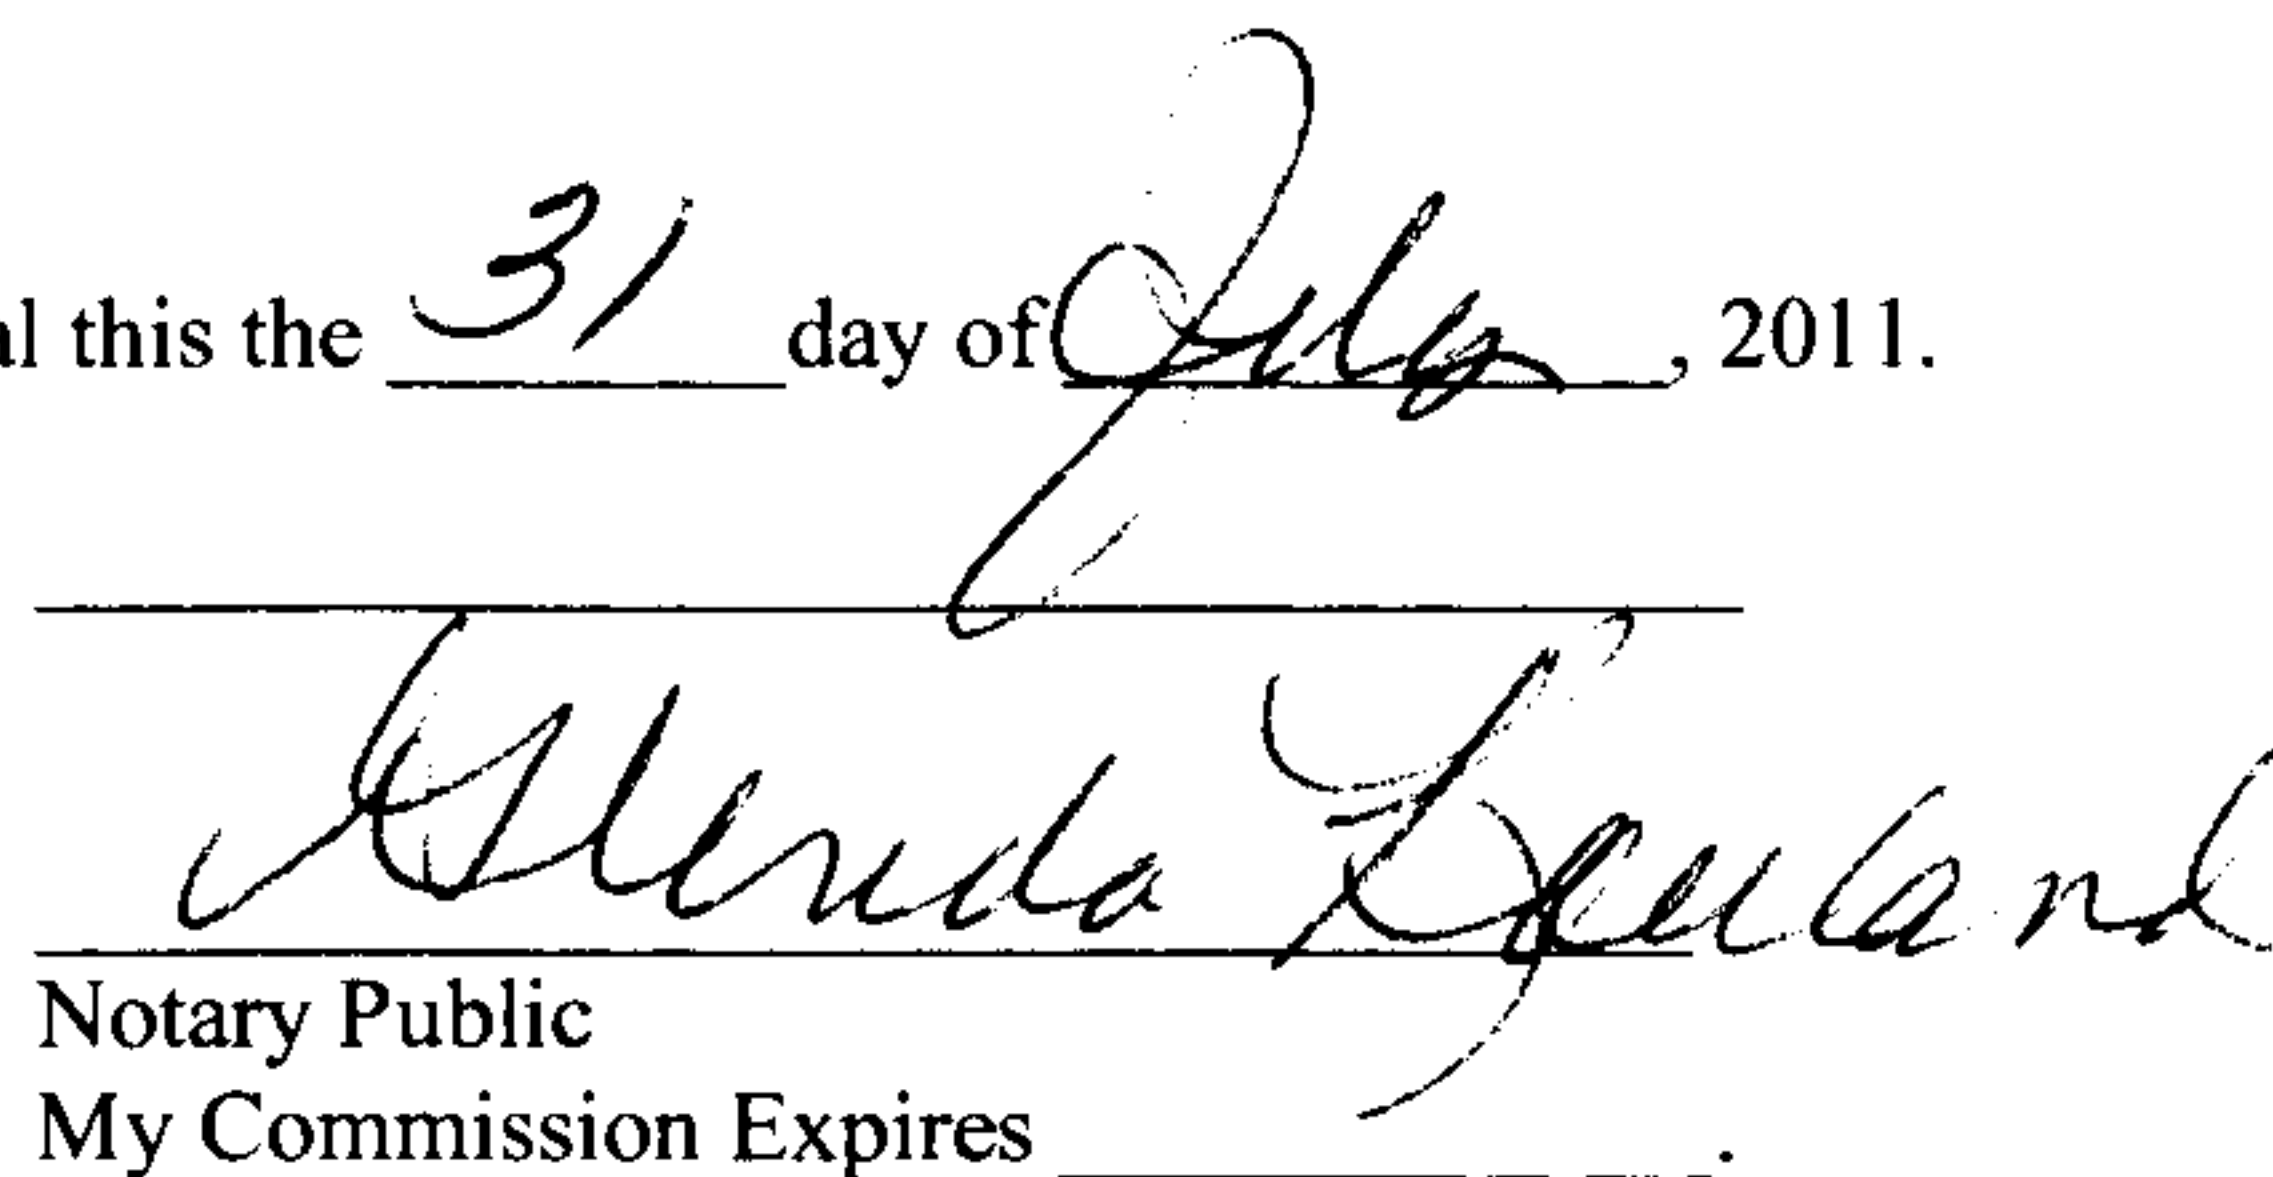 al this the 31 day of July, 2011.
Glenda
Notary Public
My Commission Expires .